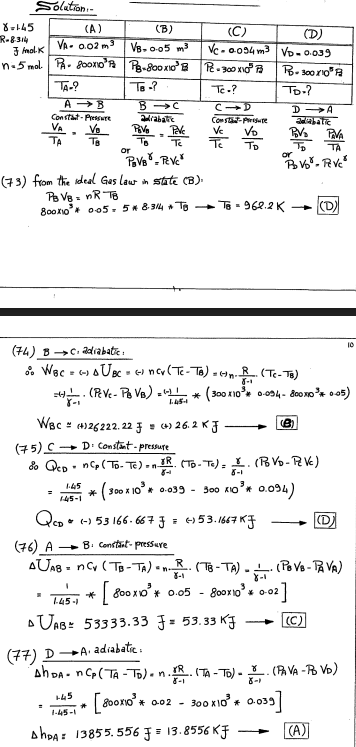 Solution:-
γ=1.45
R=8.314 J/mol.K
n=5 mol.
(A) (B) (C) (D)
VA= 0.02 m³ VB=0.05 m³ VC=0.094m³ VD=0.039
PA= 800x10³ Pa PB=800x10³ Pa PC=300x10³ Pa PD=300x10³ Pa
TA=? TB=? TC=? TD=?
A → B B → C C → D D → A
Constant-Pressure adiabatic Constant-Pressure adiabatic
VA/TA = VB/TB PBVB/TB = PCVC/TC VC/TC = VD/TD PDVD/TD = PAVA/TA
or or
PBVB^γ = PCVC^γ PDVD^γ = PCVC^γ
(73) from the ideal Gas law in state (B):
PB VB = nR TB
800x10³ * 0.05 = 5 * 8.314 * TB → TB = 962.2 K → (D)
10
(74) B → C: adiabatic:
∴ WBC = (-) ΔUBC = (-) n CV (TC - TB) = (-) n. R/(γ-1) . (TC - TB)
= (-) 1/(γ-1) . (PC VC - PB VB) = (-) 1/(1.45-1) * (300x10³ * 0.094 - 800x10³ * 0.05)
WBC ≅ (+) 26222.22 J ≡ (+) 26.2 KJ → (B)
(75) C → D: Constant-pressure
∴ QCD = n CP (TD - TC) = n γR/(γ-1) . (TD - TC) = γ/(γ-1) . (PD VD - PC VC)
= 1.45/(1.45-1) * (300x10³ * 0.039 - 300x10³ * 0.094)
QCD ≅ (-) 53166.667 J ≡ (-) 53.1667 KJ → (D)
(76) A → B: Constant-pressure
ΔUAB = n CV (TB - TA) = n. R/(γ-1) . (TB - TA) = 1/(γ-1) . (PB VB - PA VA)
= 1/(1.45-1) * [800x10³ * 0.05 - 800x10³ * 0.02]
ΔUAB ≅ 53333.33 J ≡ 53.33 KJ → (C)
(77) D → A: adiabatic:
ΔhDA = n CP (TA - TD) = n. γR/(γ-1) . (TA - TD) = γ/(γ-1) . (PA VA - PD VD)
= 1.45/(1.45-1) * [800x10³ * 0.02 - 300x10³ * 0.039]
ΔhDA ≅ 13855.556 J ≡ 13.8556 KJ → (A)